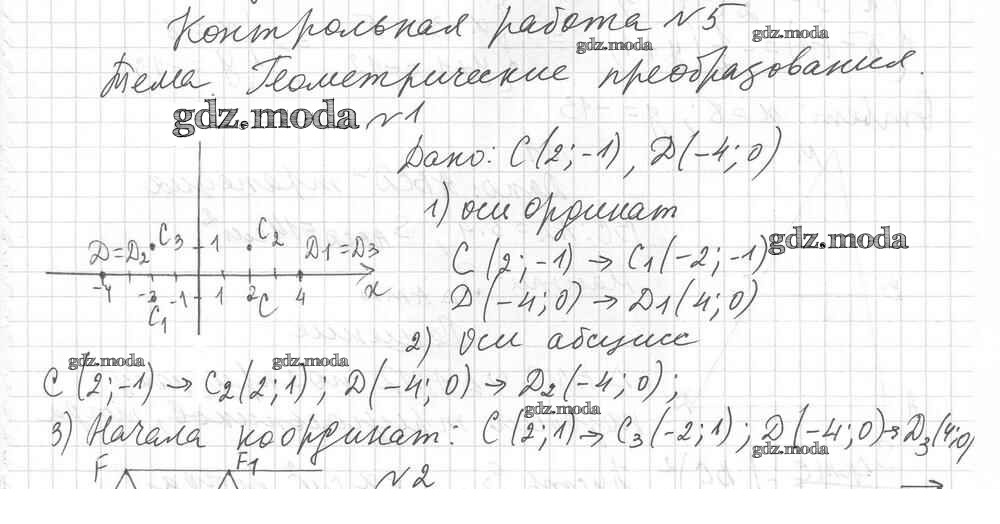 Контрольная работа №5
gdz.moda
gdz.moda
Тема. Геометрические преобразования.
gdz.moda
№1
Дано: C(2;-1), D(-4;0)
1) оси ординат
D=D2 C3 1 C2 D1=D3
C(2;-1) → C1(-2;-1)
gdz.moda
-4 -2 -1 1 2 4 x
C1 C
D(-4;0) → D1(4;0)
2) Оси абсцисс
gdz.moda
gdz.moda
C(2;-1) → C2(2;1); D(-4;0) → D2(-4;0);
gdz.moda
3) Начала координат: C(2;1) → C3(-2;1); D(-4;0) → D3(4;0)
gdz.moda
F F1
№2